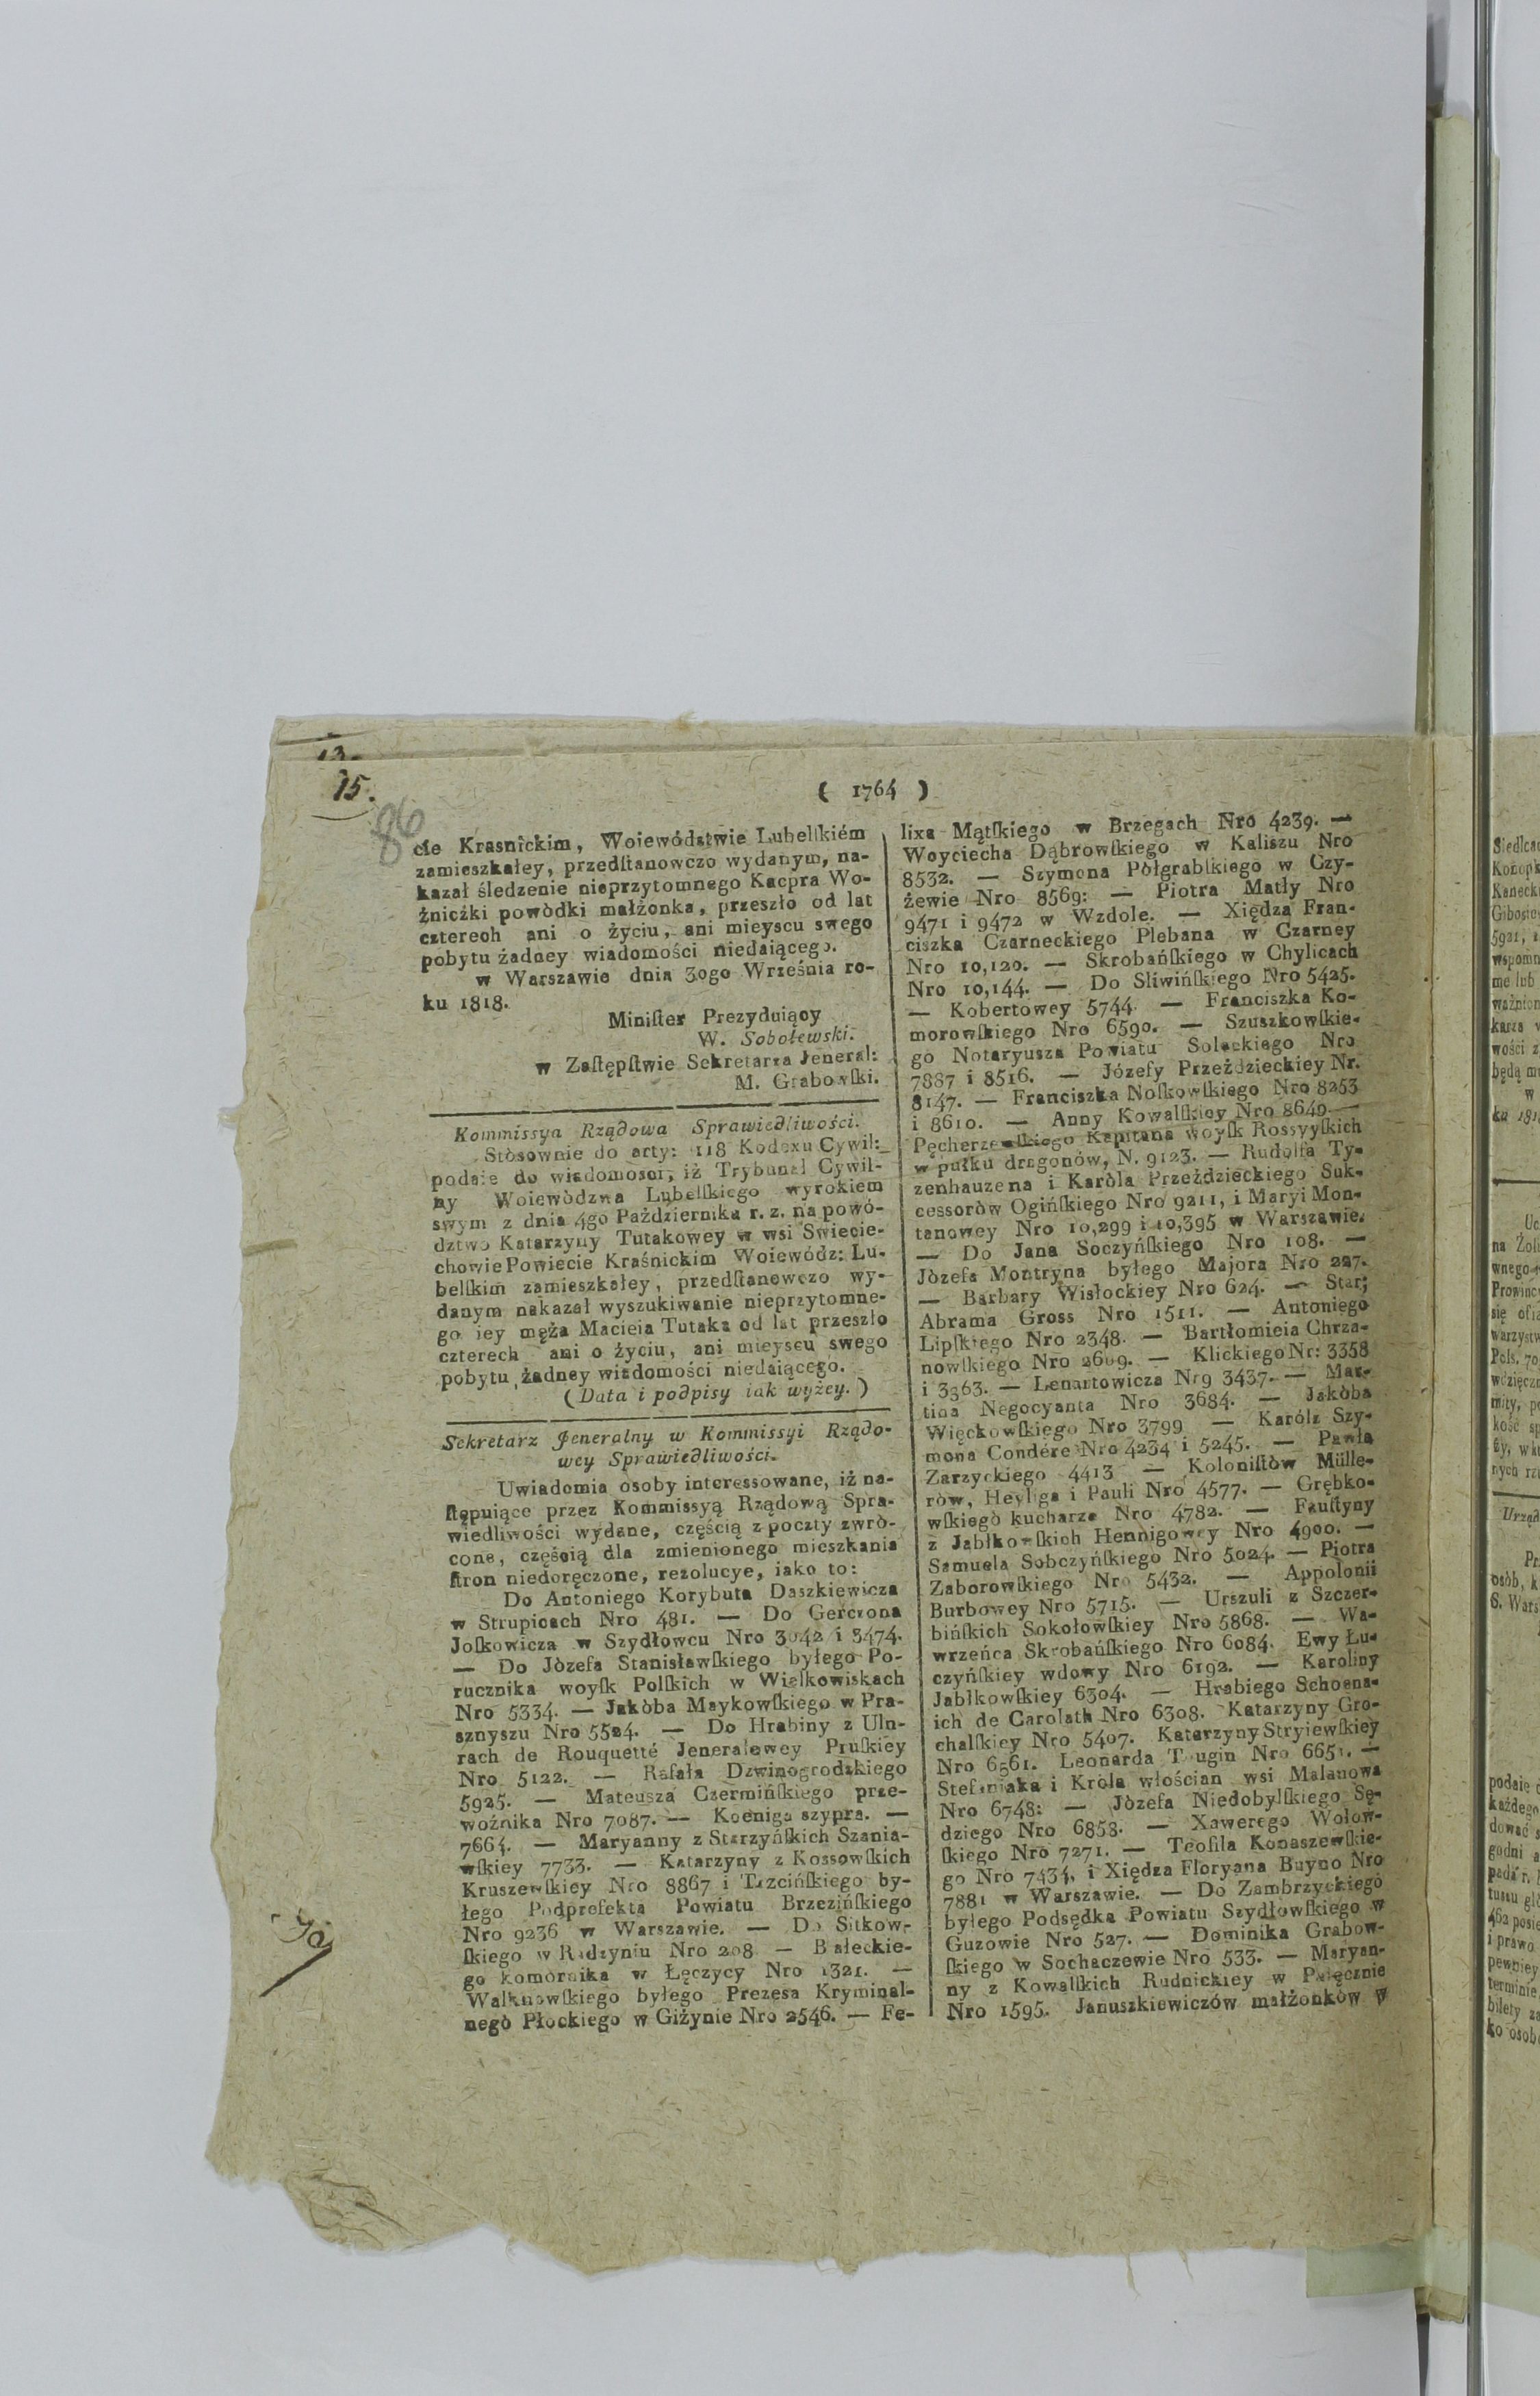 15.
86
( 1764 )
cie Krasnickim, Woiewództwie Lubelſkiém
zamieszkałey, przedſtanowczo wydanym, na-
kazał śledzenie nieprzytomnego Kacpra Wo-
źniczki powòdki małżonka, przeszło od lat
cztereoh ani o życiu, ani mieyscu swego
pobytu żadney wiadomości niedaiącego.
w Warszawie dnia 30go Września ro-
ku 1818.
Miniſter Prezyduiący
W. Sobolewski.
w Zaſtępſtwie Sekretarza Jeneral:
M. Grabowſki.
Kommissya Rządowa Sprawiedliwości.
Stòsownie do arty: 118 Kodexu Cywil:
podaie do wiadomosci, iż Trybunał Cywil-
ny Woiewòdzwa Lubelſkiego wyrokiem
swym z dnia 4go Października r. z. na powó-
dztwo Katarzyny Tutakowey w wsi Swiecie-
chowie Powiecie Kraśnickim Woiewódz: Lu-
belſkim zamieszkałey, przedſtanewczo wy-
danym nakazał wyszukiwanie nieprzytomne-
go iey męża Macieia Tutaka od lat przeszło
czterech ani o życiu, ani mieyscu swego
pobytu żadney wiadomości niedaiącego.
(Data i podpisy iak wyżey.)
Sekretarz Jeneralny w Kommissyi Rządo-
wey Sprawiedliwości.
Uwiadomia osoby interessowane, iż na-
ſtępuiące przez Kommissyą Rządową Spra-
wiedliwości wydane, częścią z poczty zwrò-
cone, częścią dla zmienionego mieszkania
ſtron niedoręczone, rezolucye, iako to:
Do Antoniego Korybuta Daszkiewicza
w Strupicach Nro 481. — Do Gerczona
Joſkowicza w Szydłowcu Nro 3042 i 3474.
— Do Jòzefa Stanisławſkiego byłego Po-
rucznika woyſk Polſkich w Wielkowiskach
Nro 5334. — Jakòba Maykowſkiego w Pra-
sznyszu Nro 5524. — Do Hrabiny z Uln-
rach de Rouquetté Jeneralewey Pruſkiey
Nro 5122. — Rafała Dzwinogrodzkiego
5925. — Mateusza Czermińſkiego prze-
woźnika Nro 7087. — Koeniga szypra. —
7664. — Maryanny z Starzyńſkich Szania-
wſkiey 7733. — Katarzyny z Kossowſkich
Kruszewſkiey Nro 8867 i Trzcińſkiego by-
łego Podprefekta Powiatu Brzezińſkiego
Nro 9236 w Warszawie. — Do Sitkow-
ſkiego w Radzyniu Nro 208 — Białeckie-
go komornika w Łęczycy Nro 1321. —
Walknowſkiego byłego Prezesa Kryminal-
negò Płockiego w Giżynie Nro 2546. — Fe-
lixa Mątſkiego w Brzegach Nro 4239. —
Woyciecha Dąbrowſkiego w Kaliszu Nro
8532. — Szymona Pòłgrabſkiego w Czy-
żewie Nro 8569: — Piotra Matły Nro
9471 i 9472 w Wzdole. — Xiędza Fran-
ciszka Czarneckiego Plebana w Czarney
Nro 10,120. — Skrobańſkiego w Chylicach
Nro 10,144. — Do Sliwińſkiego Nro 5425.
— Kobertowey 5744. — Franciszka Ko-
morowſkiego Nro 6590. — Szuszkowſkie-
go Notaryusza Powiatu Soleckiego Nro
7887 i 8516. — Józefy Przeździeckiey Nr.
8147. — Franciszka Noſkowſkiego Nro 8253
i 8610. — Anny Kowalſkiey Nro 8649 —
Pęcherzewſkiego Kapitana woyſk Rossyyſkich
w pułku dragonów, N. 9123. — Rudolfa Ty-
zenhauzena i Karòla Przeździeckiego Suk-
cessoròw Ogińſkiego Nro 9211, i Maryi Mon-
tanowey Nro 10,299 i 10,395 w Warszawie.
— Do Jana Soczyńſkiego Nro 108. —
Jòzefa Montryna byłego Majora Nro 297.
— Barbary Wisłockiey Nro 624. — Star:
Abrama Gross Nro 1511. — Antoniego
Lipſkiego Nro 2348. — Bartłomieia Chrza-
nowſkiego Nro 2609. — Klickiego Nr: 3358
i 3363. — Lenartowicza Nro 3437. — Mar-
tina Negocyanta Nro 3684. — Jakòba
Więckowſkiego Nro 3799 — Karòla Szy-
mona Condére Nro 4234 i 5245. — Pawła
Zarzyckiego 4413 — Koloniſtòw Mülle-
ròw, Heyliga i Pauli Nro 4577. — Grębko-
wſkiegò kucharza Nro 4782. — Fauſtyny
z Jabłkowſkich Hennigowey Nro 4900. —
Samuela Sobczyńſkiego Nro 5024. — Piotra
Zaborowſkiego Nro 5432. — Appolonii
Burbowey Nro 5715. — Urszuli z Szczer-
bińſkich Sokołowſkiey Nro 5868. — Wa-
wrzeńca Skrobańſkiego Nro 6084. Ewy Łu-
czyńſkiey wdowy Nro 6192. — Karoliny
Jabłkowſkiey 6304. — Hrabiego Schoena-
ich de Carolath Nro 6308. Katarzyny Gro-
chalſkiey Nro 5407. Katarzyny Stryiewſkiey
Nro 6561. Leonarda Tougin Nro 6651. —
Stefaniaka i Kròla włościan wsi Malanowa
Nro 6748: — Jòzefa Niedobylſkiego Sę-
dziego Nro 6858. — Xawerego Wołow-
ſkiego Nro 7271. — Teofila Konaszewſkie-
go Nro 7434, i Xiędza Floryana Buyno Nro
7881 w Warszawie. — Do Zambrzyckiego
byłego Podsędka Powiatu Szydłowſkiego w
Guzowie Nro 527. — Dominika Grabow-
ſkiego w Sochaczewie Nro 533. — Maryan-
ny z Kowalſkich Rudnickiey w Pajęcznie
Nro 1595. Januszkiewiczów małżonków w